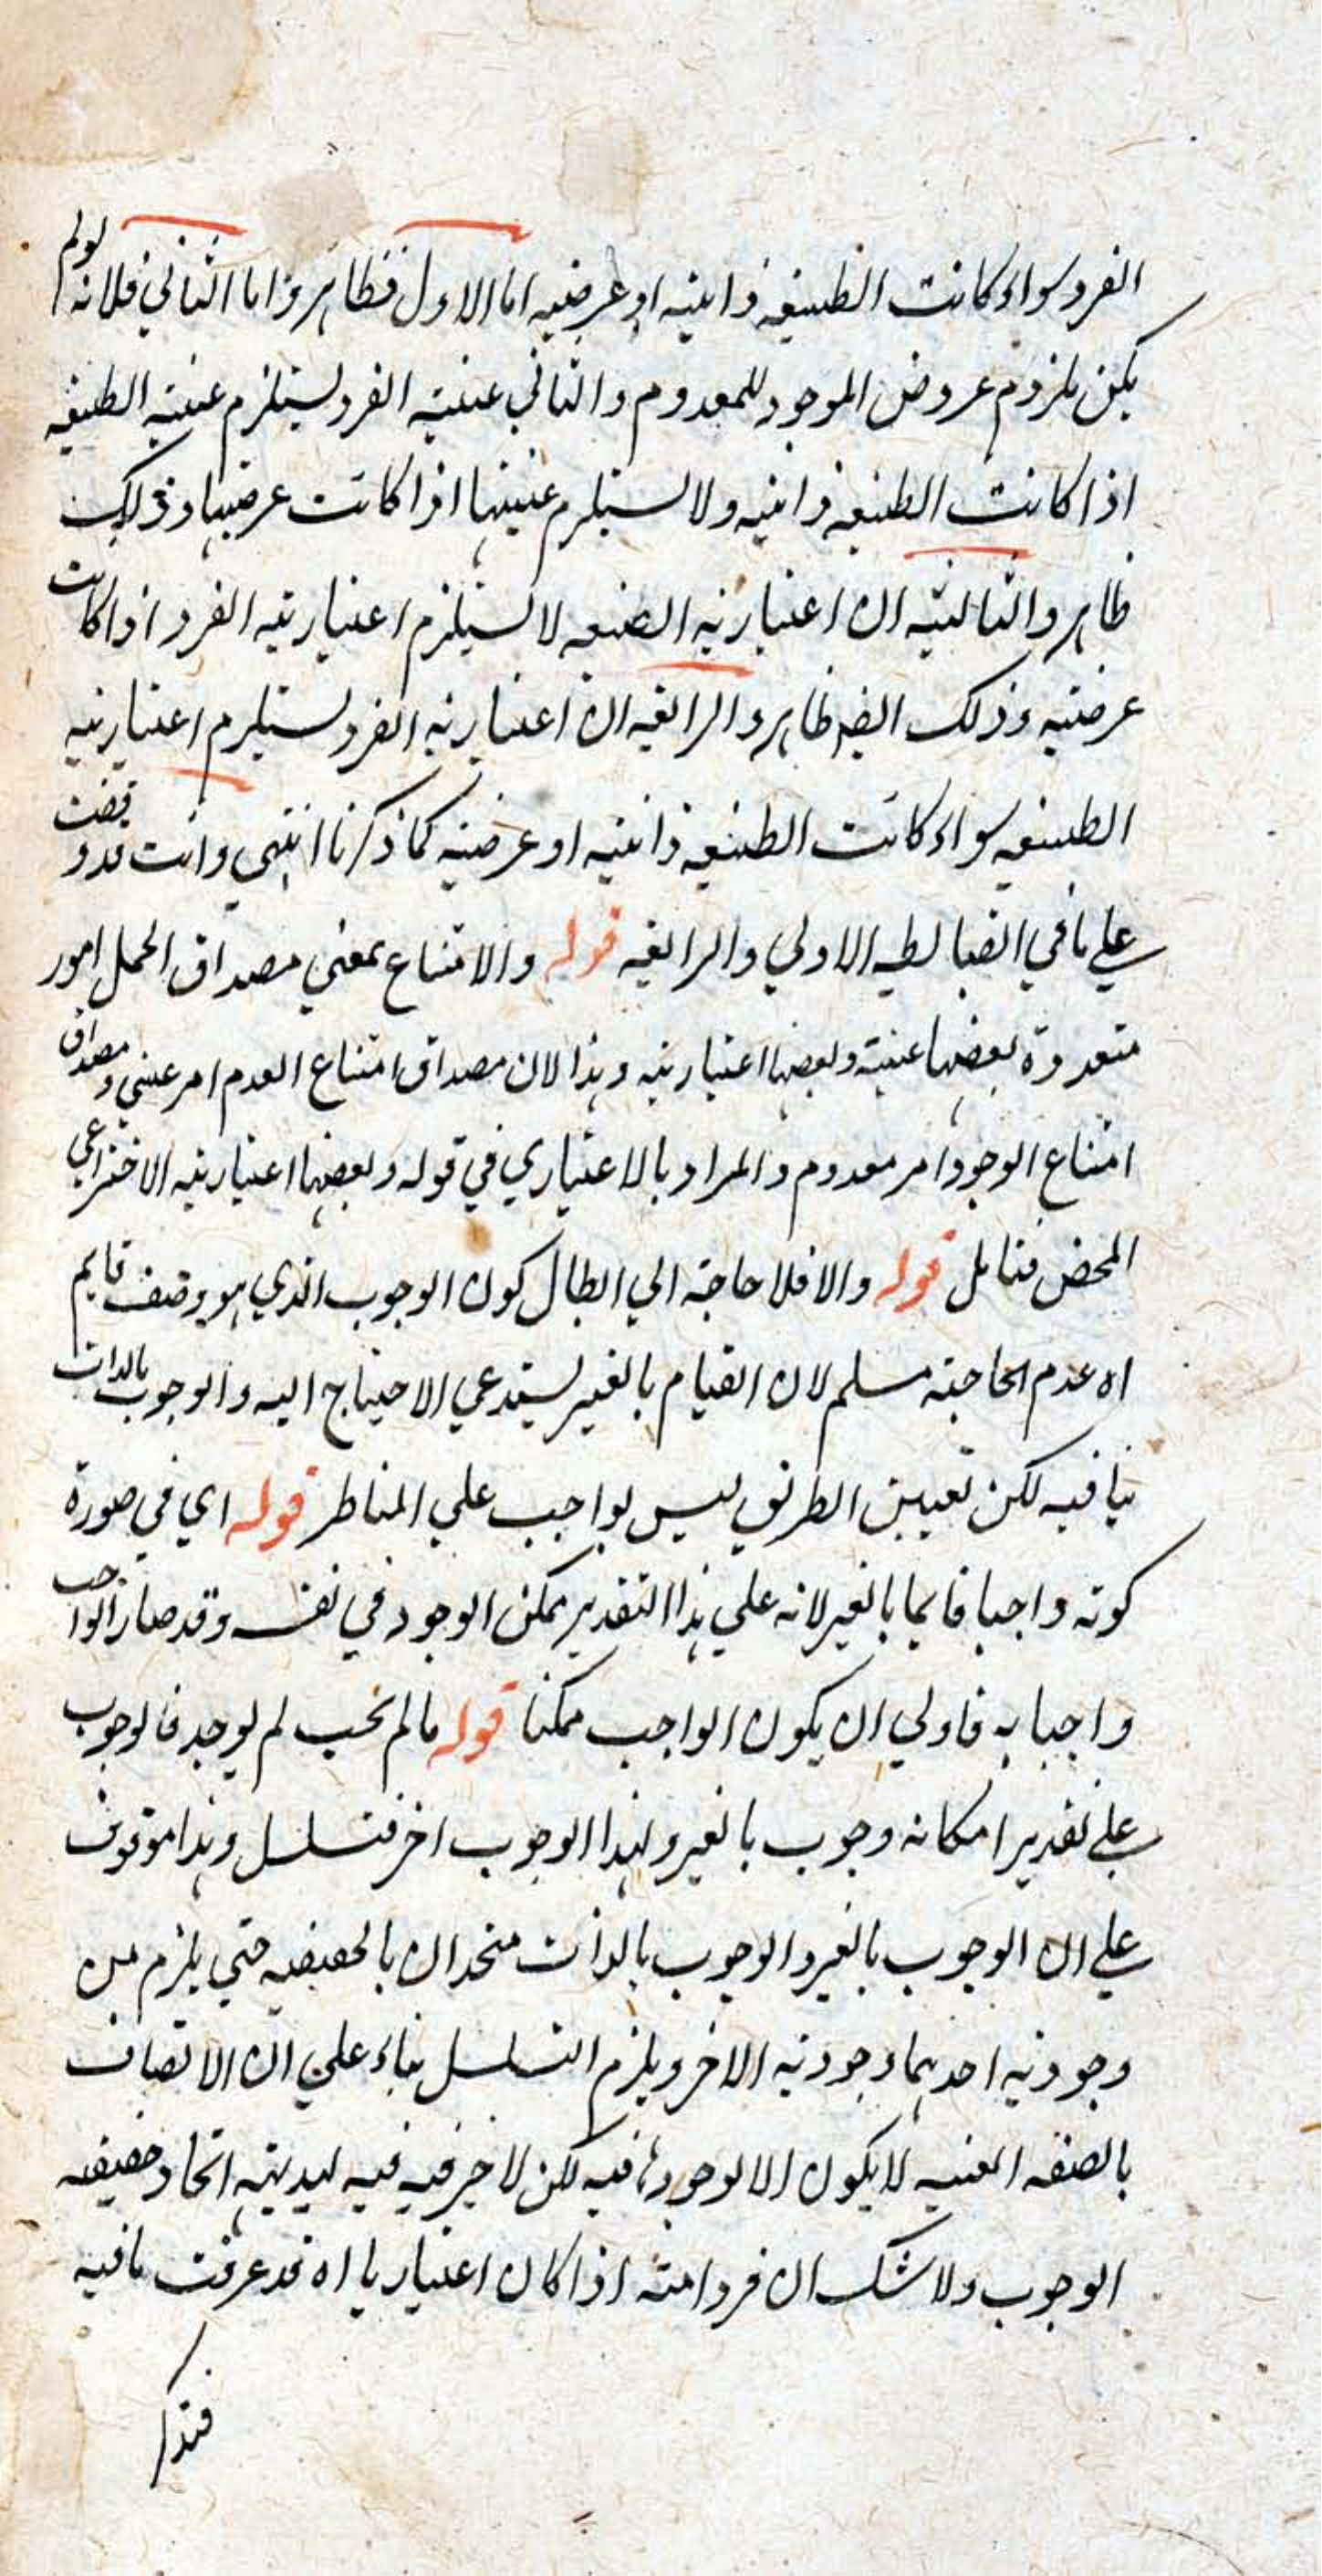 الفرد سواء كانت الطبيعة ذاتيه او عرضيه اما الاول فظاهر و اما الثاني فلانه لو لم
يكن يلزم عروض الموجود للمعدوم والثاني عينية الفرد يستلزم عينية الطبيعة
اذا كانت الطبيعه ذاتيه ولا يستلزم عينيتها اذا كانت عرضيها وذلك
ظاهر والثالثه ان اعتباريه الطبيعه لا يستلزم اعتباريه الفرد اذا كانت
عرضيه وذلك ايضا ظاهر والرابعه ان اعتباريه الفرد يستلزم اعتباريه
الطبيعه سواء كانت الطبيعه ذاتيه او عرضيه كما ذكرنا انتهي وانت قد وقفت
علي ما في الضابطه الاولي والرابعه قوله والامتناع بمعني مصداق الحمل امور
متعدده بعضها عينية وبعضها اعتباريه وهذا لان مصداق امتناع العدم امر عيني ومصداق
امتناع الوجود امر معدوم والمراد بالاعتباري في قوله وبعضها اعتباريه الاختراعي
المحض فتامل قوله والا فلا حاجة الي ابطال كون الوجوب الذي هو وصف قايم
اه عدم الحاجة مسلم لان القيام بالغير يستدعي الاحتياج اليه والوجوب بالذات
ينافيه لكن تعيين الطريق ليس بواجب علي المناظر قوله اي في صورة
كونه واجبا قايما بالغير لانه علي هذا التقدير ممكن الوجود في نفسه وقد صار الواجب
واجبا به فاولي ان يكون الواجب ممكنا قوله ما لم يجب لم يوجد فالوجوب
علي تقدير امكانه وجوب بالغير ولهذا الوجوب اخر فتسلسل وهذا موقوف
علي ان الوجوب بالغير والوجوب بالذات متحدان بالحقيقه حتي يلزم من
وجوديه احدهما وجوديه الاخر ويلزم التسلسل بناء علي ان الاتصاف
بالصفه العينيه لا يكون الا لوجود فيه لكن لا خير فيه لبديهيه اتحاد حقيقه
الوجوب ولا شك ان فردا منه اذا كان اعتباريا اه قد عرفت ما فيه
فتذكر